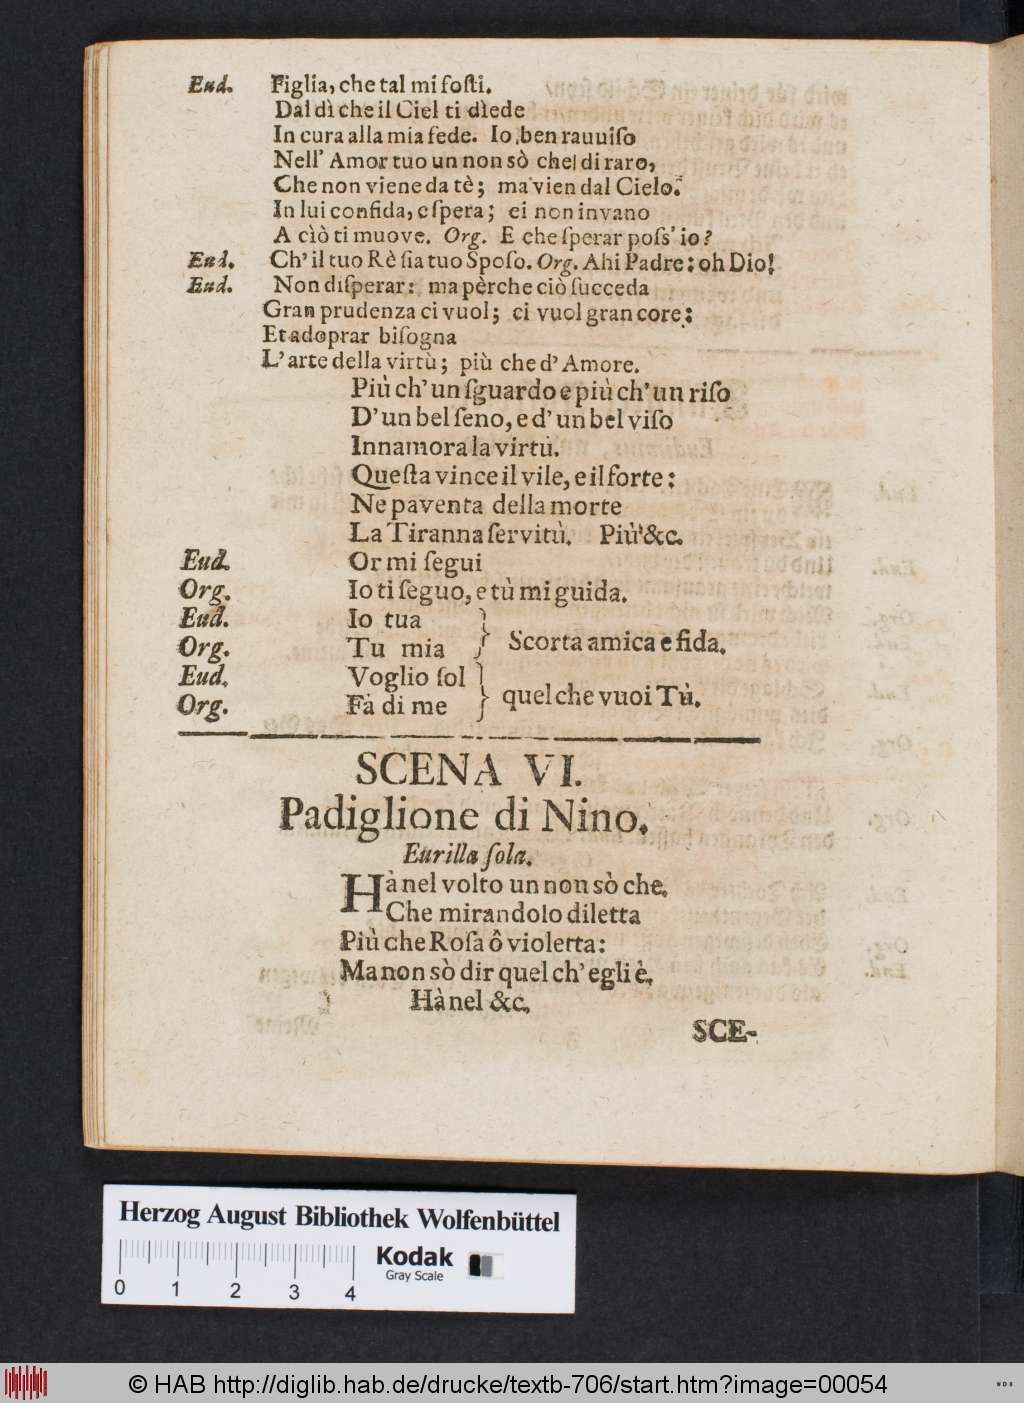 Eud. Figlia, che tal mi foſti.
Dal dì che il Ciel ti dìede
In cura alla mia fede. Io ben rauuiſo
Nell' Amor tuo un non sò che di raro,
Che non viene da tè; ma vien dal Cielo.
In lui confida, e ſpera; ei non invano
A cìò ti muove. Org. E che ſperar poſs' io?
Eud. Ch' il tuo Rè ſia tuo Spoſo. Org. Ahi Padre: oh Dio!
Eud. Non diſperar: ma pèrche ciò ſucceda
Gran prudenza ci vuol; ci vuol gran core:
Et adoprar biſogna
L' arte della virtù; più che d' Amore.
Più ch' un ſguardo e più ch' un riſo
D' un bel ſeno, e d' un bel viſo
Innamora la virtù.
Queſta vince il vile, e il forte:
Ne paventa della morte
La Tiranna ſervitù. Più &c.
Eud. Or mi ſegui
Org. Io ti ſeguo, e tù mi guida.
Eud. Io tua
Org. Tu mia } Scorta amica e fida.
Eud. Voglio ſol
Org. Fà di me } quel che vuoi Tù.
SCENA VI.
Padiglione di Nino.
Eurilla ſola.
Hà nel volto un non sò che,
Che mirandolo diletta
Più che Roſa ô violetta:
Ma non sò dir quel ch' egli è,
Hà nel &c.
SCE-
Herzog August Bibliothek Wolfenbüttel
0 1 2 3 4
Kodak
Gray Scale
© HAB http://diglib.hab.de/drucke/textb-706/start.htm?image=00054